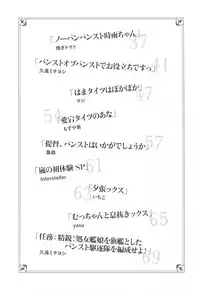 「ノーパンパンスト時雨ちゃん」
焼きトマト
37
「パンストオブパンストでお役立ちですっ」
久遠ミチヨシ
41
「はまタイツはぽかぽか」
マジ
47
「愛宕タイツのあな」
もずや紫
54
「提督、パンストはいかがでしょうか」
57
「嵐の初体験SP」
Interstellar
61
「夕張ックス」
いちこ
62
「むっちゃんと息抜きックス」
yasu
65
「任務：精鋭！処女艦娘を旗艦とした
パンスト駆逐隊を編成せよ！」
久遠ミチヨシ
69